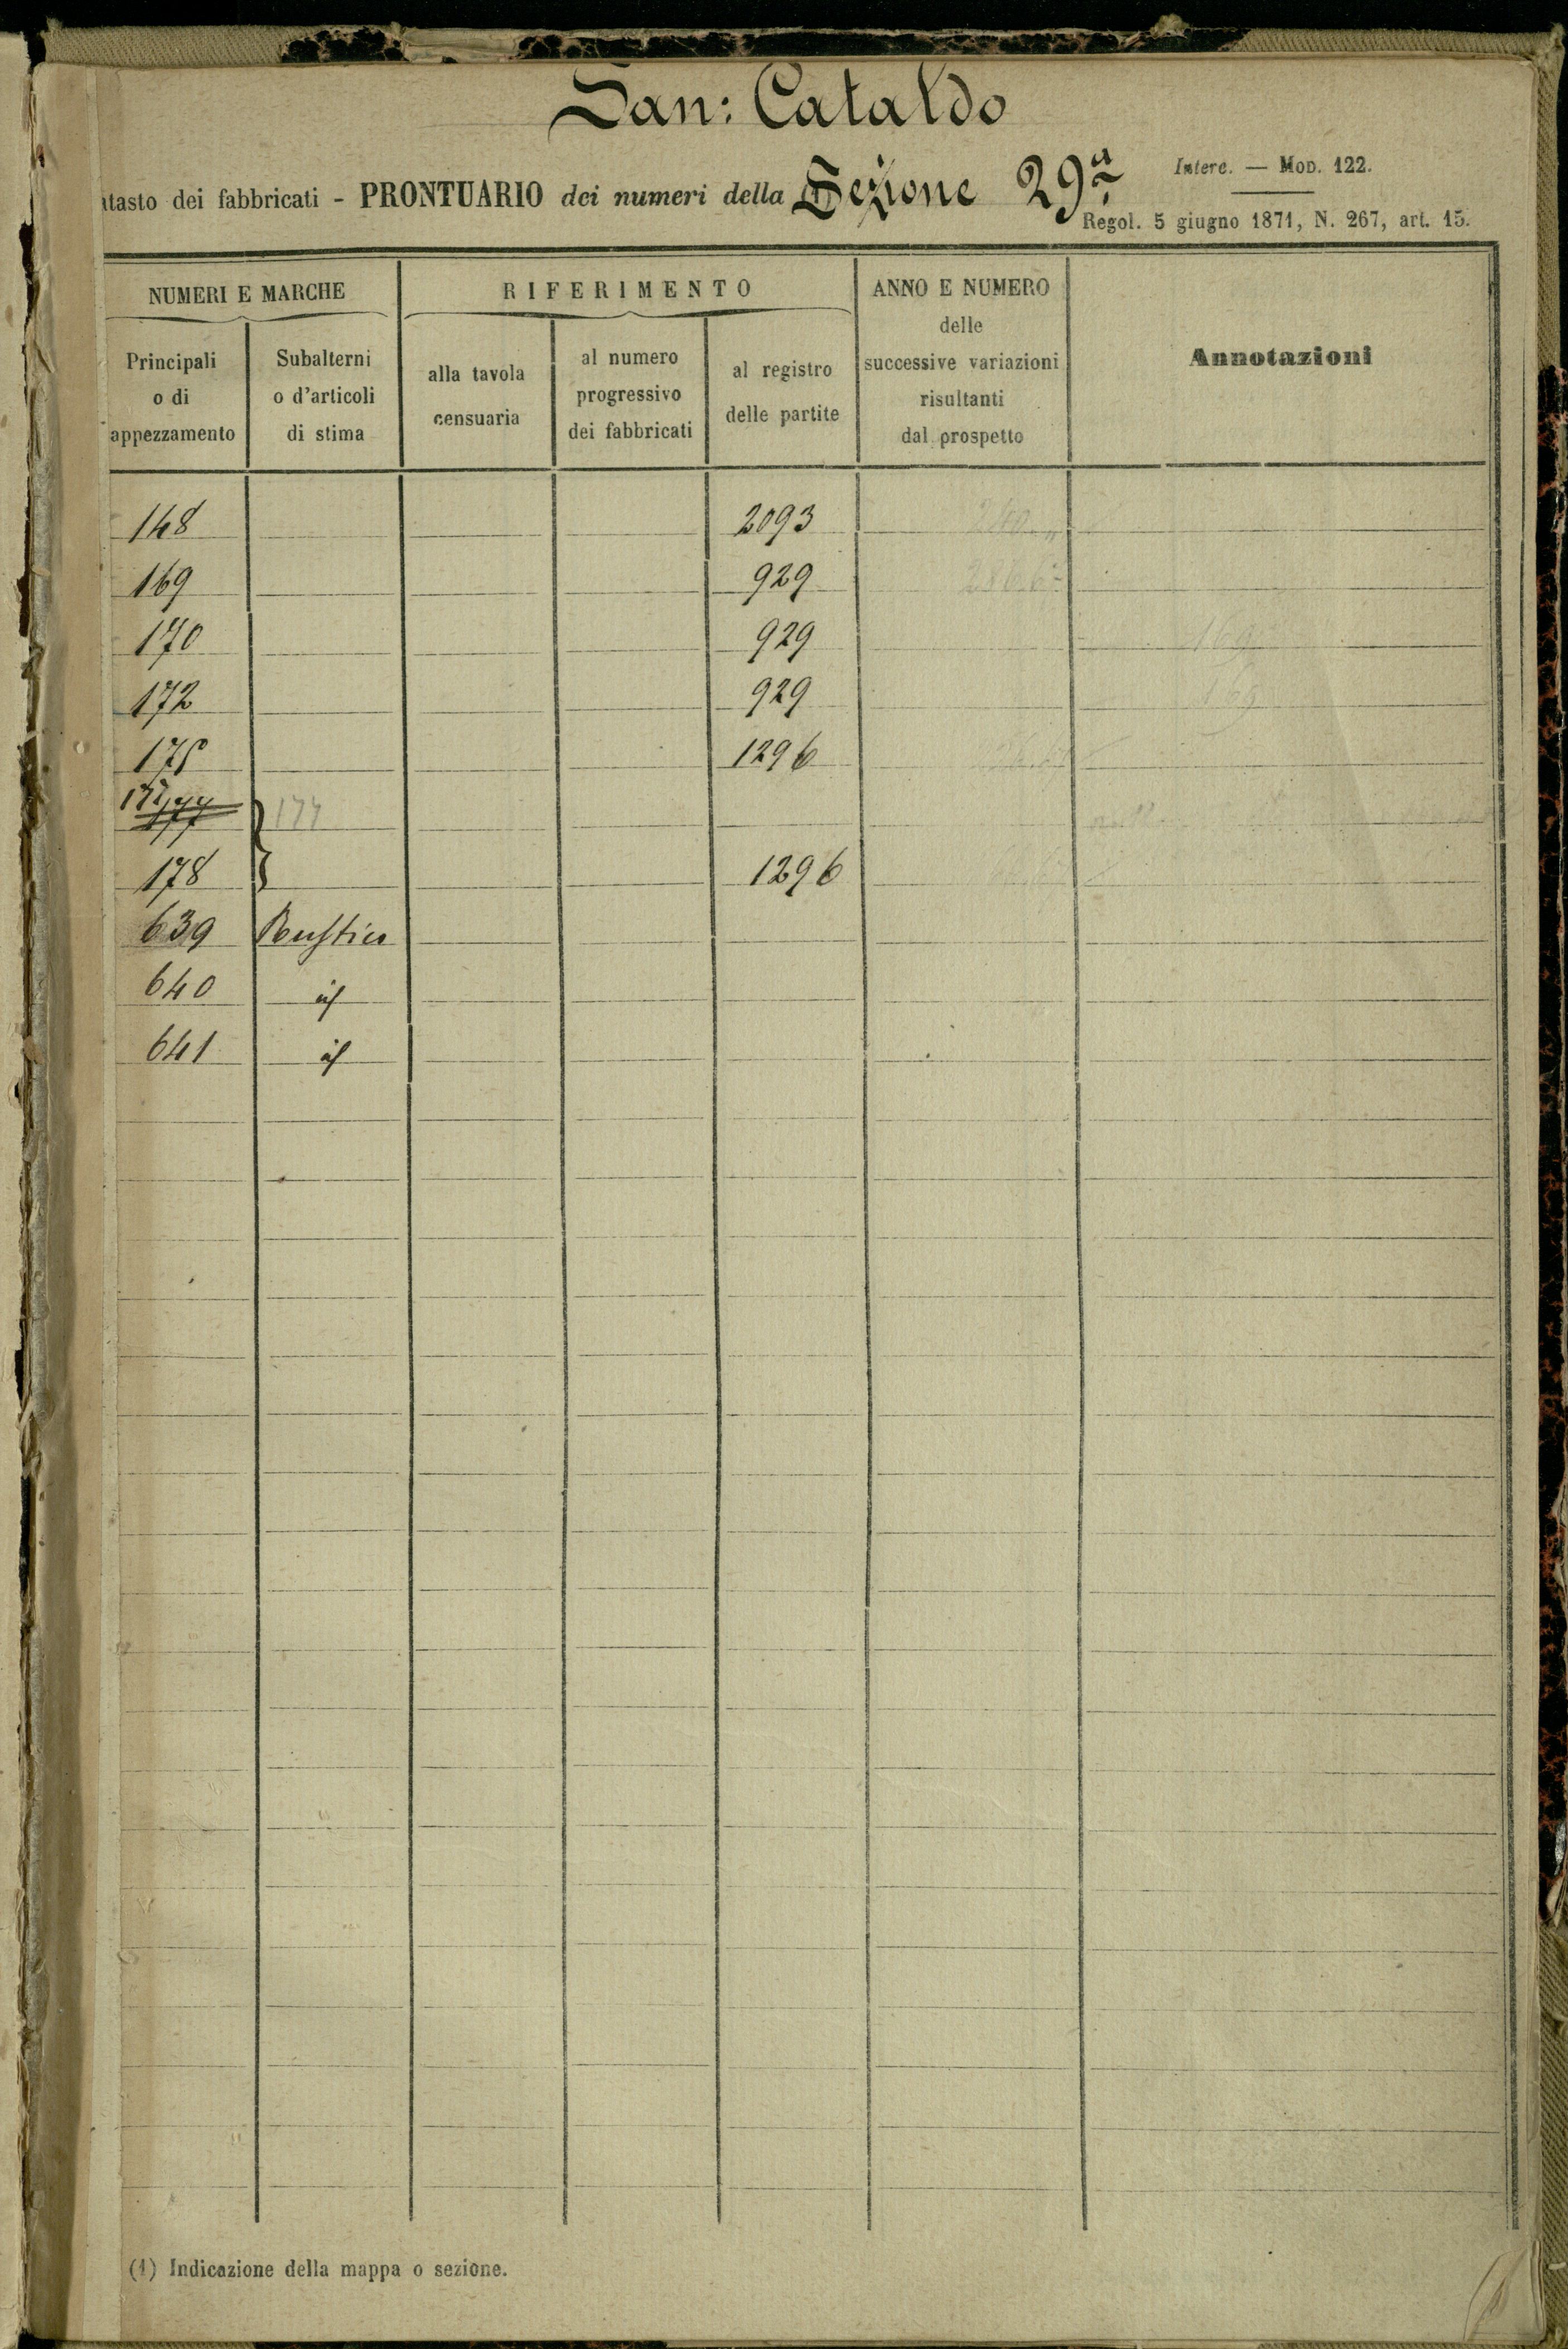 San: Cataldo
atasto dei fabbricati - PRONTUARIO dei numeri della Sezione 29ª
Interc. — Mod. 122.
Regol. 5 giugno 1871, N. 267, art. 15.
NUMERI E MARCHE
RIFERIMENTO
ANNO E NUMERO
delle
successive variazioni
risultanti
dal prospetto
Annotazioni
Principali
o di
appezzamento
Subalterni
o d'articoli
di stima
alla tavola
censuaria
al numero
progressivo
dei fabbricati
al registro
delle partite
148 2093
169 929
170 929
172 929
175 1296
177 177
178 1296
639 Rustico
640 id
641 id
(1) Indicazione della mappa o sezione.